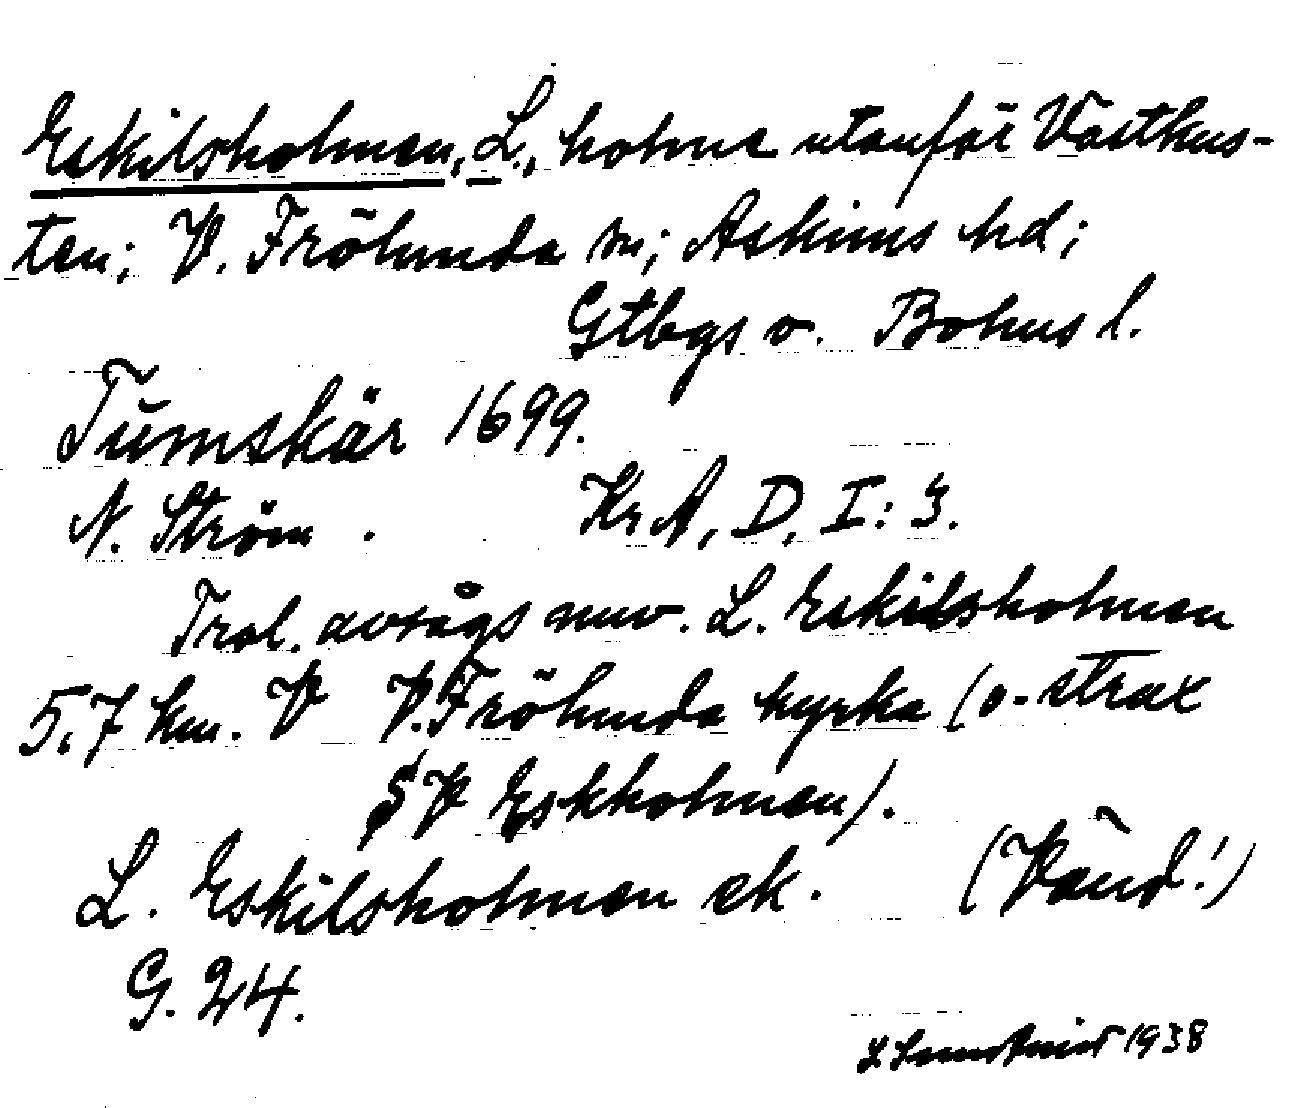 Eskilsholmen, L., holme utanför Västkus-
ten; V. Frölunda sn; Askims hd;
Gtbgs o. Bohus l.
Tŭmskär 1699.
N. Ström. KrA, D, I: 3.
Trol. avsågs nuv. L. Eskilsholmen
5,7 km. V V. Frölunda kyrka (o. strax
SV Eskholmen).
L. Eskilsholmen ek. (Vänd!)
G. 24.
1938